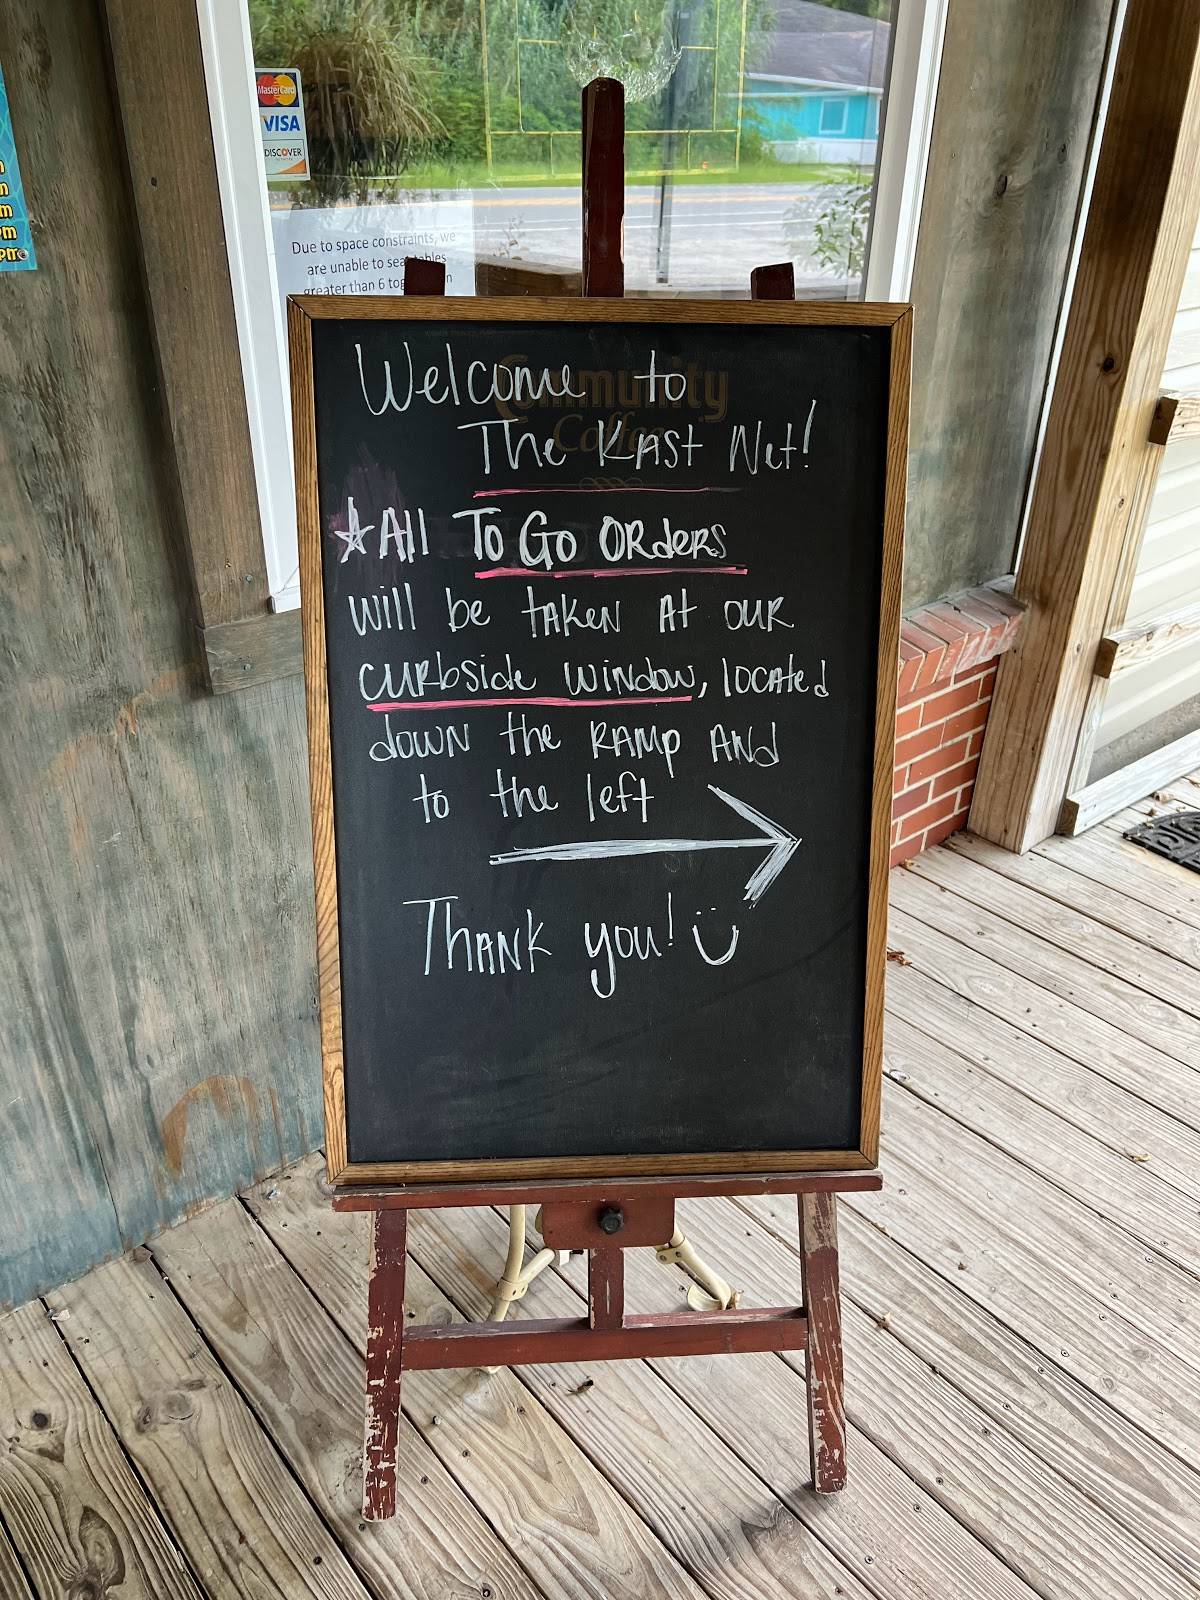 MasterCard
VISA
DISCOVER
Due to space constraints, we
are unable to seat tables
greater than 6
Community
Coffee
Welcome to
The Kast Net!
All To Go Orders
will be taken at our
curbside window, located
down the ramp and
to the left
Thank you!